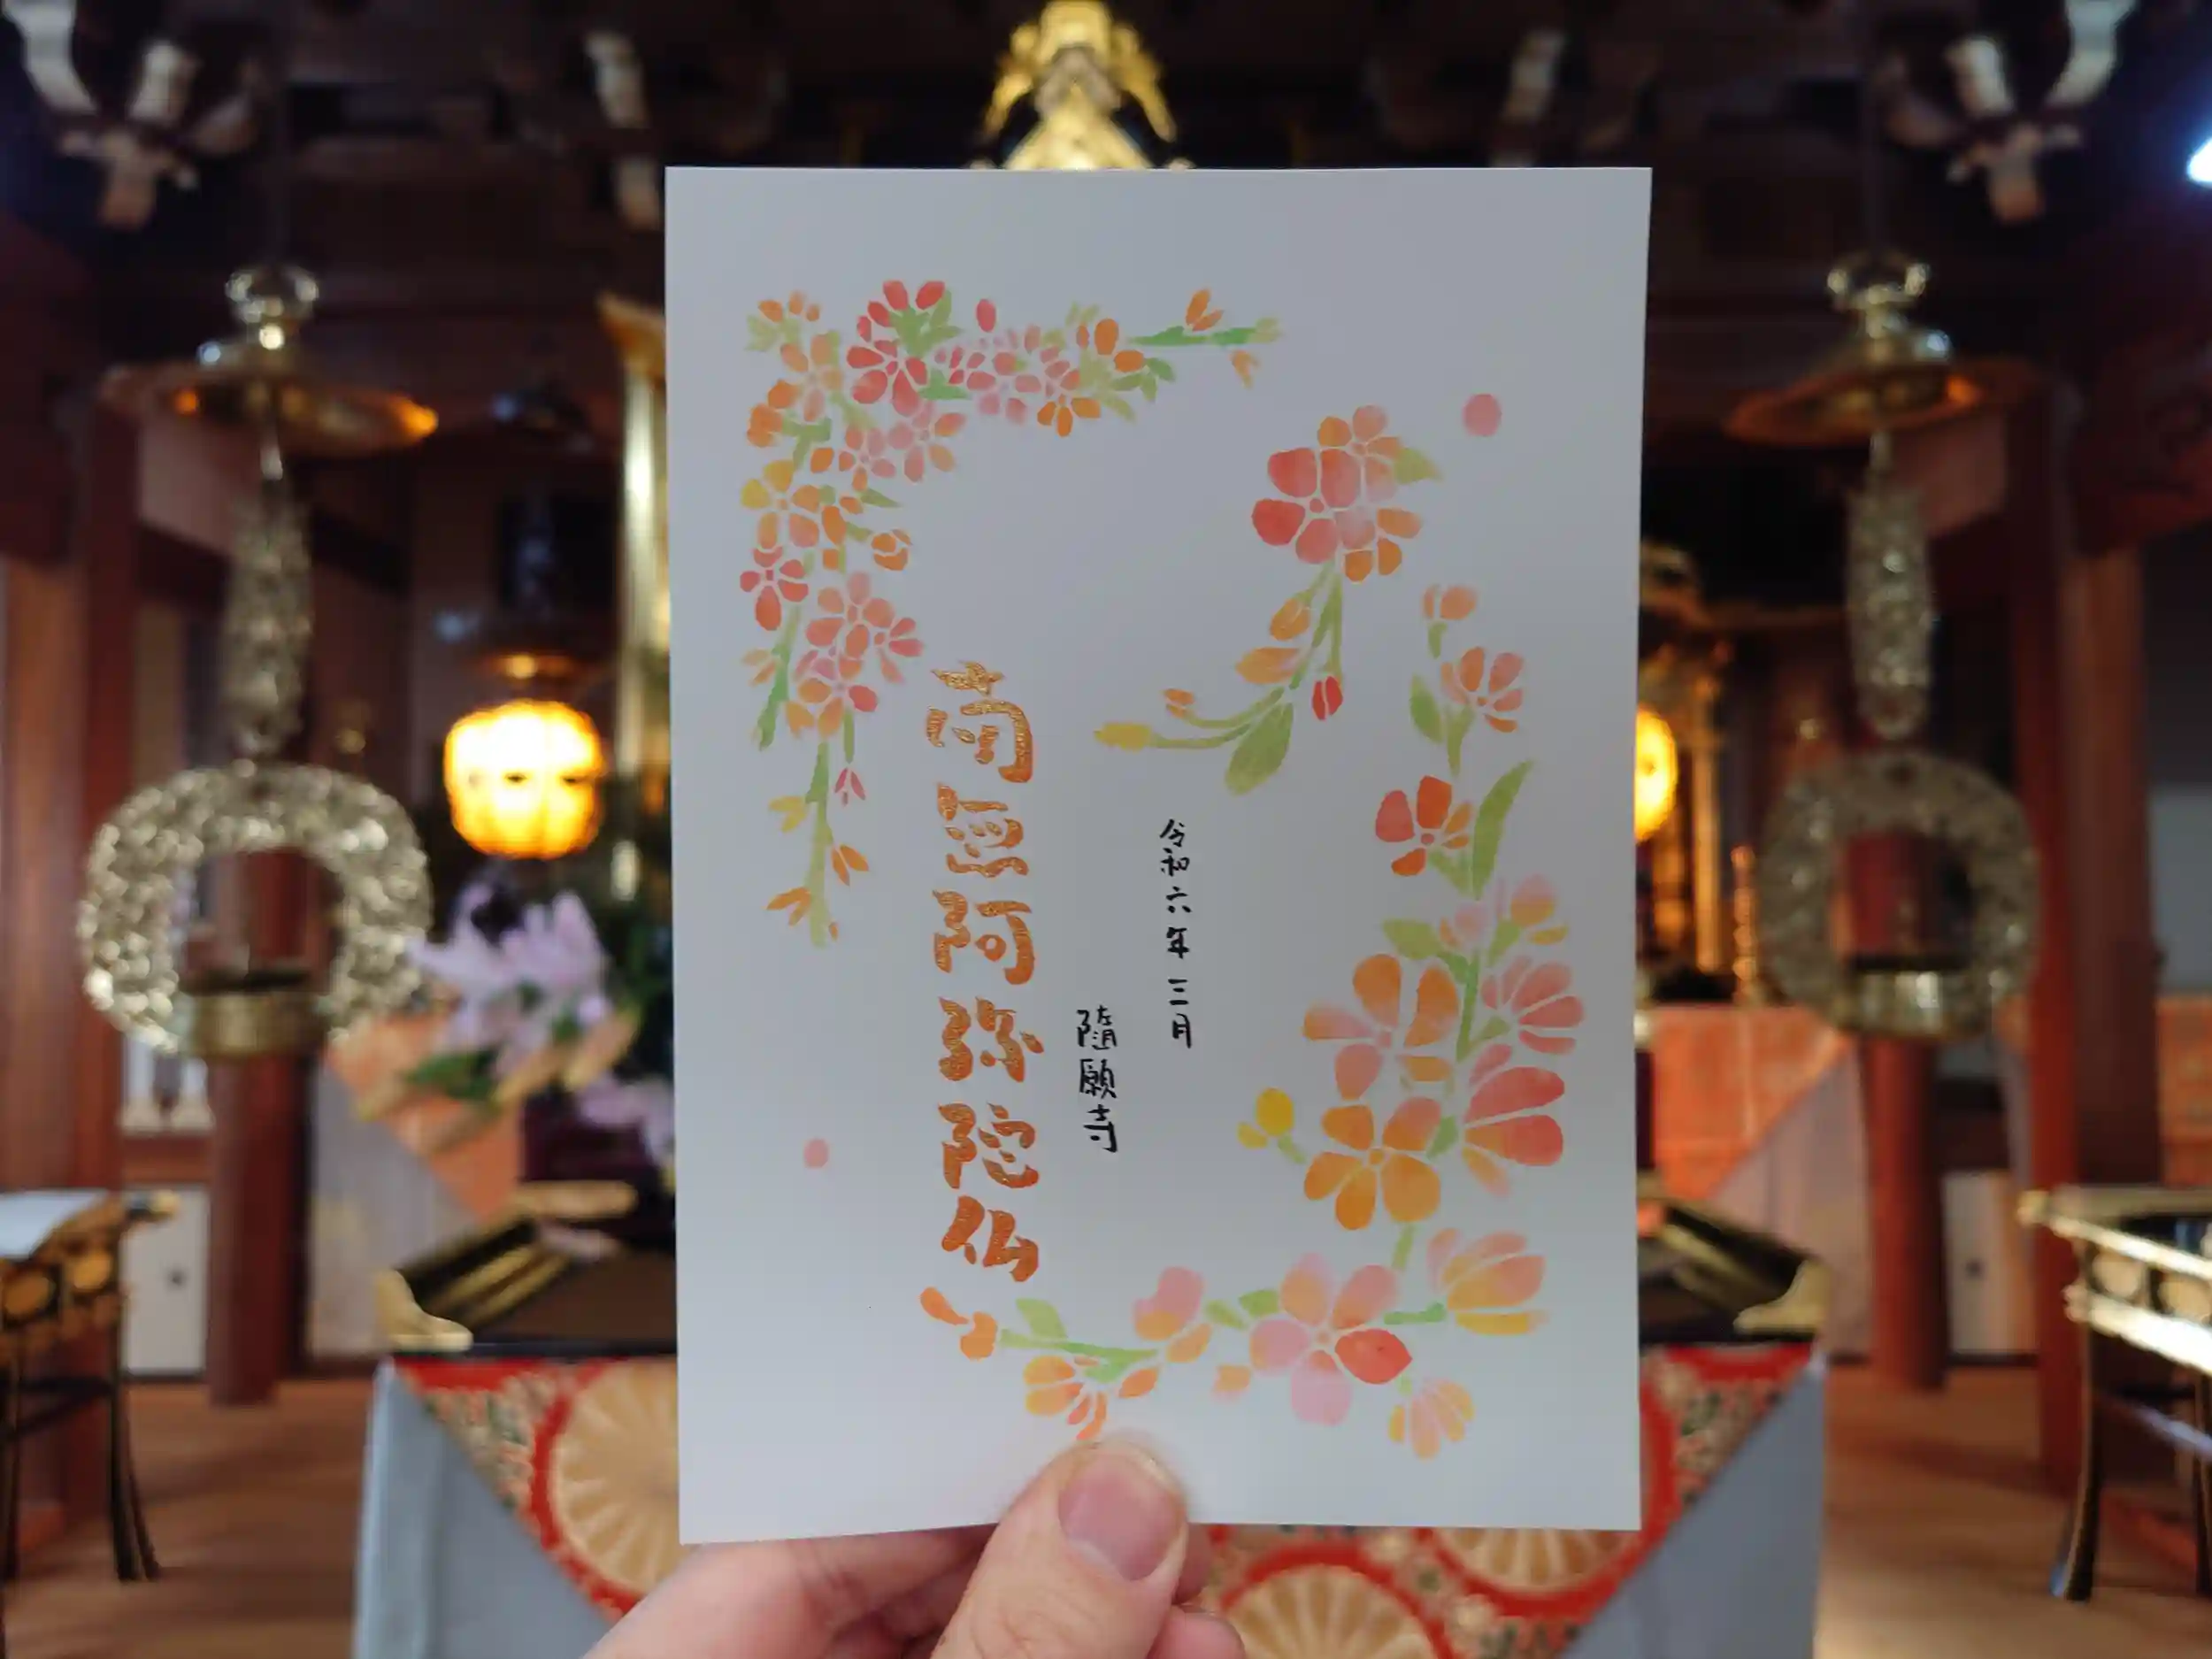 令和六年三月
隨願寺
南無阿弥陀仏